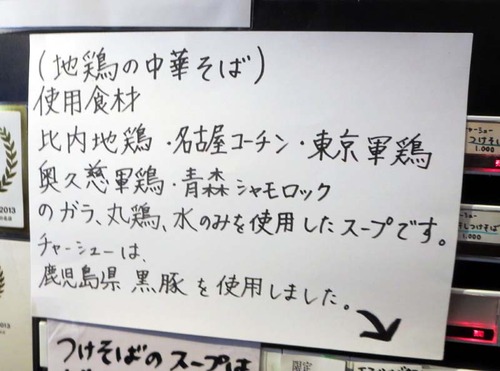 (地鶏の中華そば)
使用食材
比内地鶏・名古屋コーチン・東京軍鶏
奥久慈軍鶏・青森シャモロック
のガラ、丸鶏、水のみを使用したスープです。
チャーシューは、
鹿児島県 黒豚を使用しました。
つけそばのスープは
チャーシュー
つけそば
1,000
2013
限定